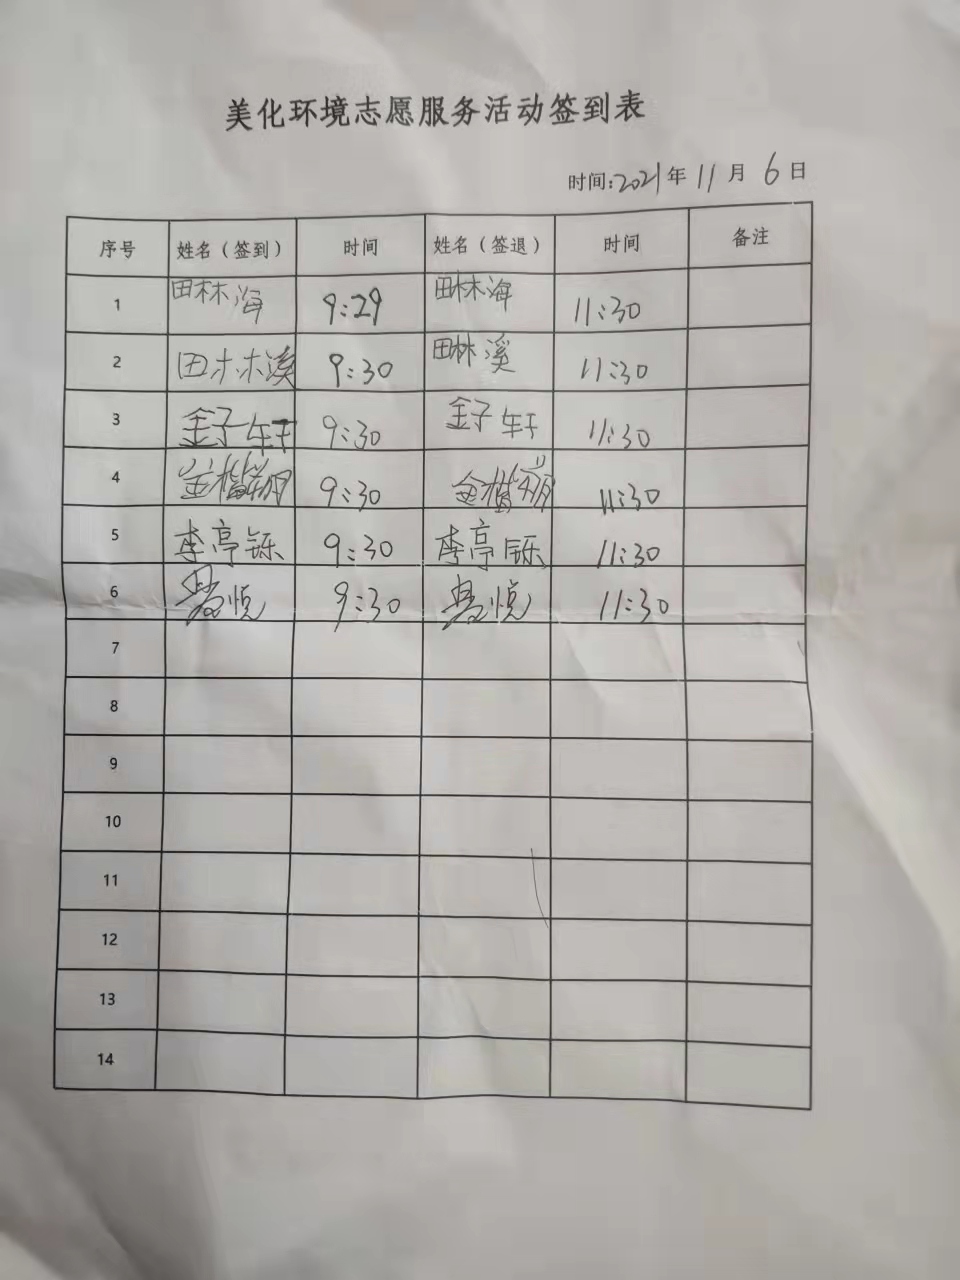 美化环境志愿服务活动签到表
时间:2021年11月6日
序号 姓名（签到） 时间 姓名（签退） 时间 备注
1 田林海 9:29 田林海 11:30
2 田林溪 9:30 田林溪 11:30
3 金子轩 9:30 金子轩 11:30
4 金 9:30 金 11:30
5 李亭铄 9:30 李亭铄 11:30
6 悦 9:30 悦 11:30
7
8
9
10
11
12
13
14